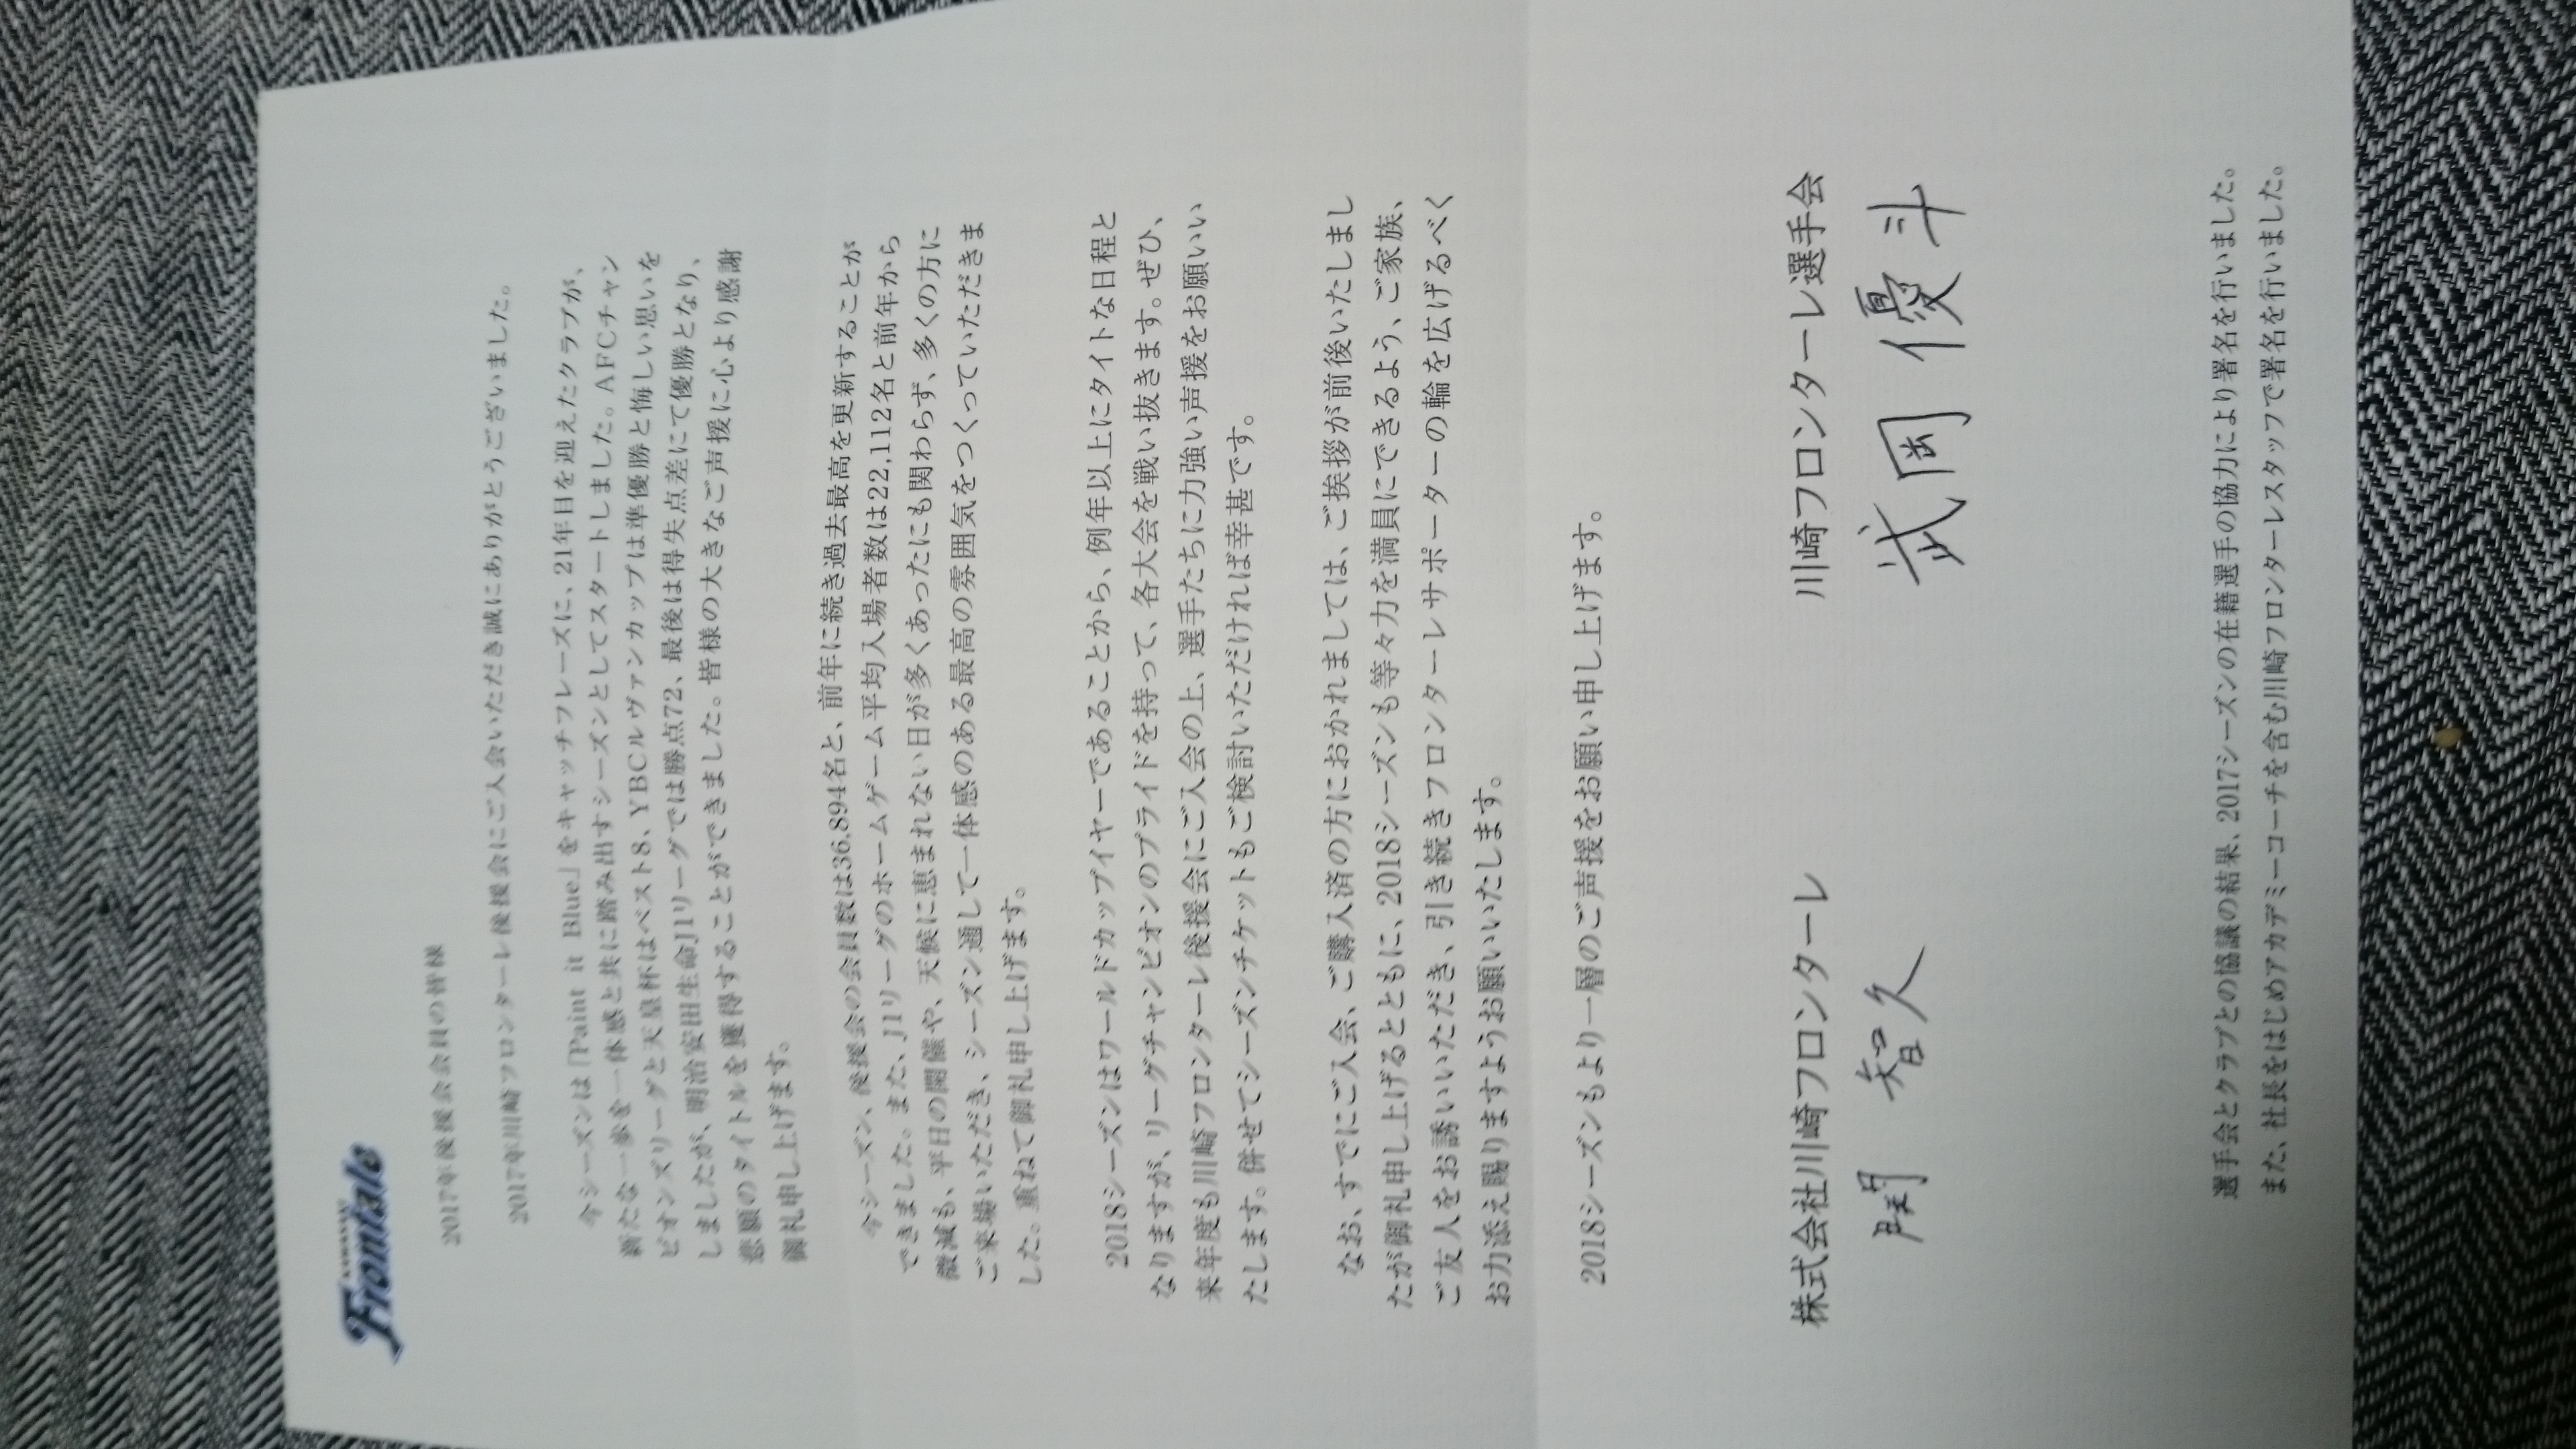 KAWASAKI
Frontale
2017年後援会会員の皆様
2017年川崎フロンターレ後援会にご入会いただき誠にありがとうございました。
今シーズンは「Paint it Blue」をキャッチフレーズに、21年目を迎えたクラブが、
新たな一歩を一体感と共に踏み出すシーズンとしてスタートしました。AFCチャン
ピオンズリーグと天皇杯はベスト8、YBCルヴァンカップは準優勝と悔しい思いを
しましたが、明治安田生命J1リーグでは勝点72、最後は得失点差にて優勝となり、
悲願のタイトルを獲得することができました。皆様の大きなご声援に心より感謝
御礼申し上げます。
今シーズン、後援会の会員数は36,894名と、前年に続き過去最高を更新することが
できました。また、J1リーグのホームゲーム平均入場者数は22,112名と前年から
微減も、平日の開催や、天候に恵まれない日が多くあったにも関わらず、多くの方に
ご来場いただき、シーズン通して一体感のある最高の雰囲気をつくっていただきま
した。重ねて御礼申し上げます。
2018シーズンはワールドカップイヤーであることから、例年以上にタイトな日程と
なりますが、リーグチャンピオンのプライドを持って、各大会を戦い抜きます。ぜひ、
来年度も川崎フロンターレ後援会にご入会の上、選手たちに力強い声援をお願いい
たします。併せてシーズンチケットもご検討いただければ幸甚です。
なお、すでにご入会、ご購入済の方におかれましては、ご挨拶が前後いたしまし
たが御礼申し上げるとともに、2018シーズンも等々力を満員にできるよう、ご家族、
ご友人をお誘いいただき、引き続きフロンターレサポーターの輪を広げるべく
お力添え賜りますようお願いいたします。
2018シーズンもより一層のご声援をお願い申し上げます。
株式会社川崎フロンターレ 川崎フロンターレ選手会
関 智久 武岡優斗
選手会とクラブとの協議の結果、2017シーズンの在籍選手の協力により署名を行いました。
また、社長をはじめアカデミーコーチを含む川崎フロンターレスタッフで署名を行いました。